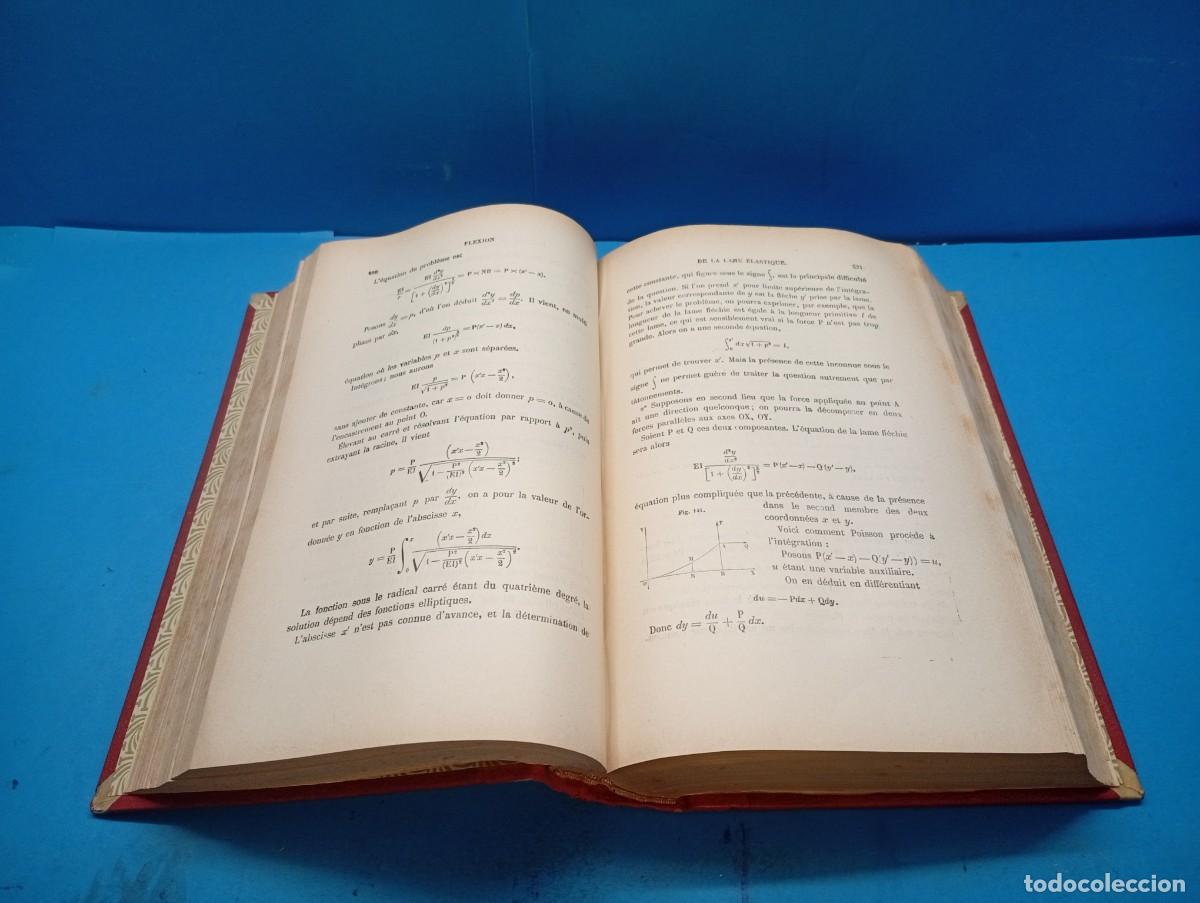 FLEXION
L'équation du problème est
EI/ρ = EI d²y/dx² / [1 + (dy/dx)²]^(3/2) = P × NB = P × (x' — x),
Posons dy/dx = p, d'où l'on déduit d²y/dx² = dp/dx. Il vient, en multi-
pliant par dx,
EI dp/(1 + p²)^(3/2) = P(x' — x) dx,
équation où les variables p et x sont séparées.
Intégrons; nous aurons
EI p/√(1 + p²) = P (x'x — x²/2),
sans ajouter de constante, car x = 0 doit donner p = 0, à cause de
l'encastrement au point O.
Élevant au carré et résolvant l'équation par rapport à p², puis
extrayant la racine, il vient
p = P/EI (x'x — x²/2) / √(1 — P²/(EI)² (x'x — x²/2)²);
et par suite, remplaçant p par dy/dx, on a pour la valeur de l'or-
donnée y en fonction de l'abscisse x,
y = P/EI ∫₀ˣ (x'x — x²/2) dx / √(1 — P²/(EI)² (x'x — x²/2)²).
La fonction sous le radical carré étant du quatrième degré, la
solution dépend des fonctions elliptiques.
L'abscisse x' n'est pas connue d'avance, et la détermination de
DE LA LAME ÉLASTIQUE.
cette constante, qui figure sous le signe ∫, est la principale difficulté
de la question. Si l'on prend x' pour limite supérieure de l'intégra-
tion, la valeur correspondante de y est la flèche y' prise par la lame.
Pour achever le problème, on pourra exprimer, par exemple, que la
longueur de la lame fléchie est égale à la longueur primitive l de
cette lame, ce qui est sensiblement vrai si la force P n'est pas trop
grande. Alors on a une seconde équation,
∫₀ˣ' dx √(1 + p²) = l,
qui permet de trouver x'. Mais la présence de cette inconnue sous le
signe ∫ ne permet guère de traiter la question autrement que par
tâtonnements.
2° Supposons en second lieu que la force appliquée au point A
ait une direction quelconque; on pourra la décomposer en deux
forces parallèles aux axes OX, OY.
Soient P et Q ces deux composantes. L'équation de la lame fléchie
sera alors
EI d²y/dx² / [1 + (dy/dx)²]^(3/2) = P(x' — x) — Q(y' — y),
équation plus compliquée que la précédente, à cause de la présence
dans le second membre des deux
coordonnées x et y.
Voici comment Poisson procède à
l'intégration :
Posons P(x' — x) — Q(y' — y) = u,
u étant une variable auxiliaire.
On en déduit en différentiant
du = — Pdx + Qdy.
Donc dy = du/Q + P/Q dx.
todocoleccion